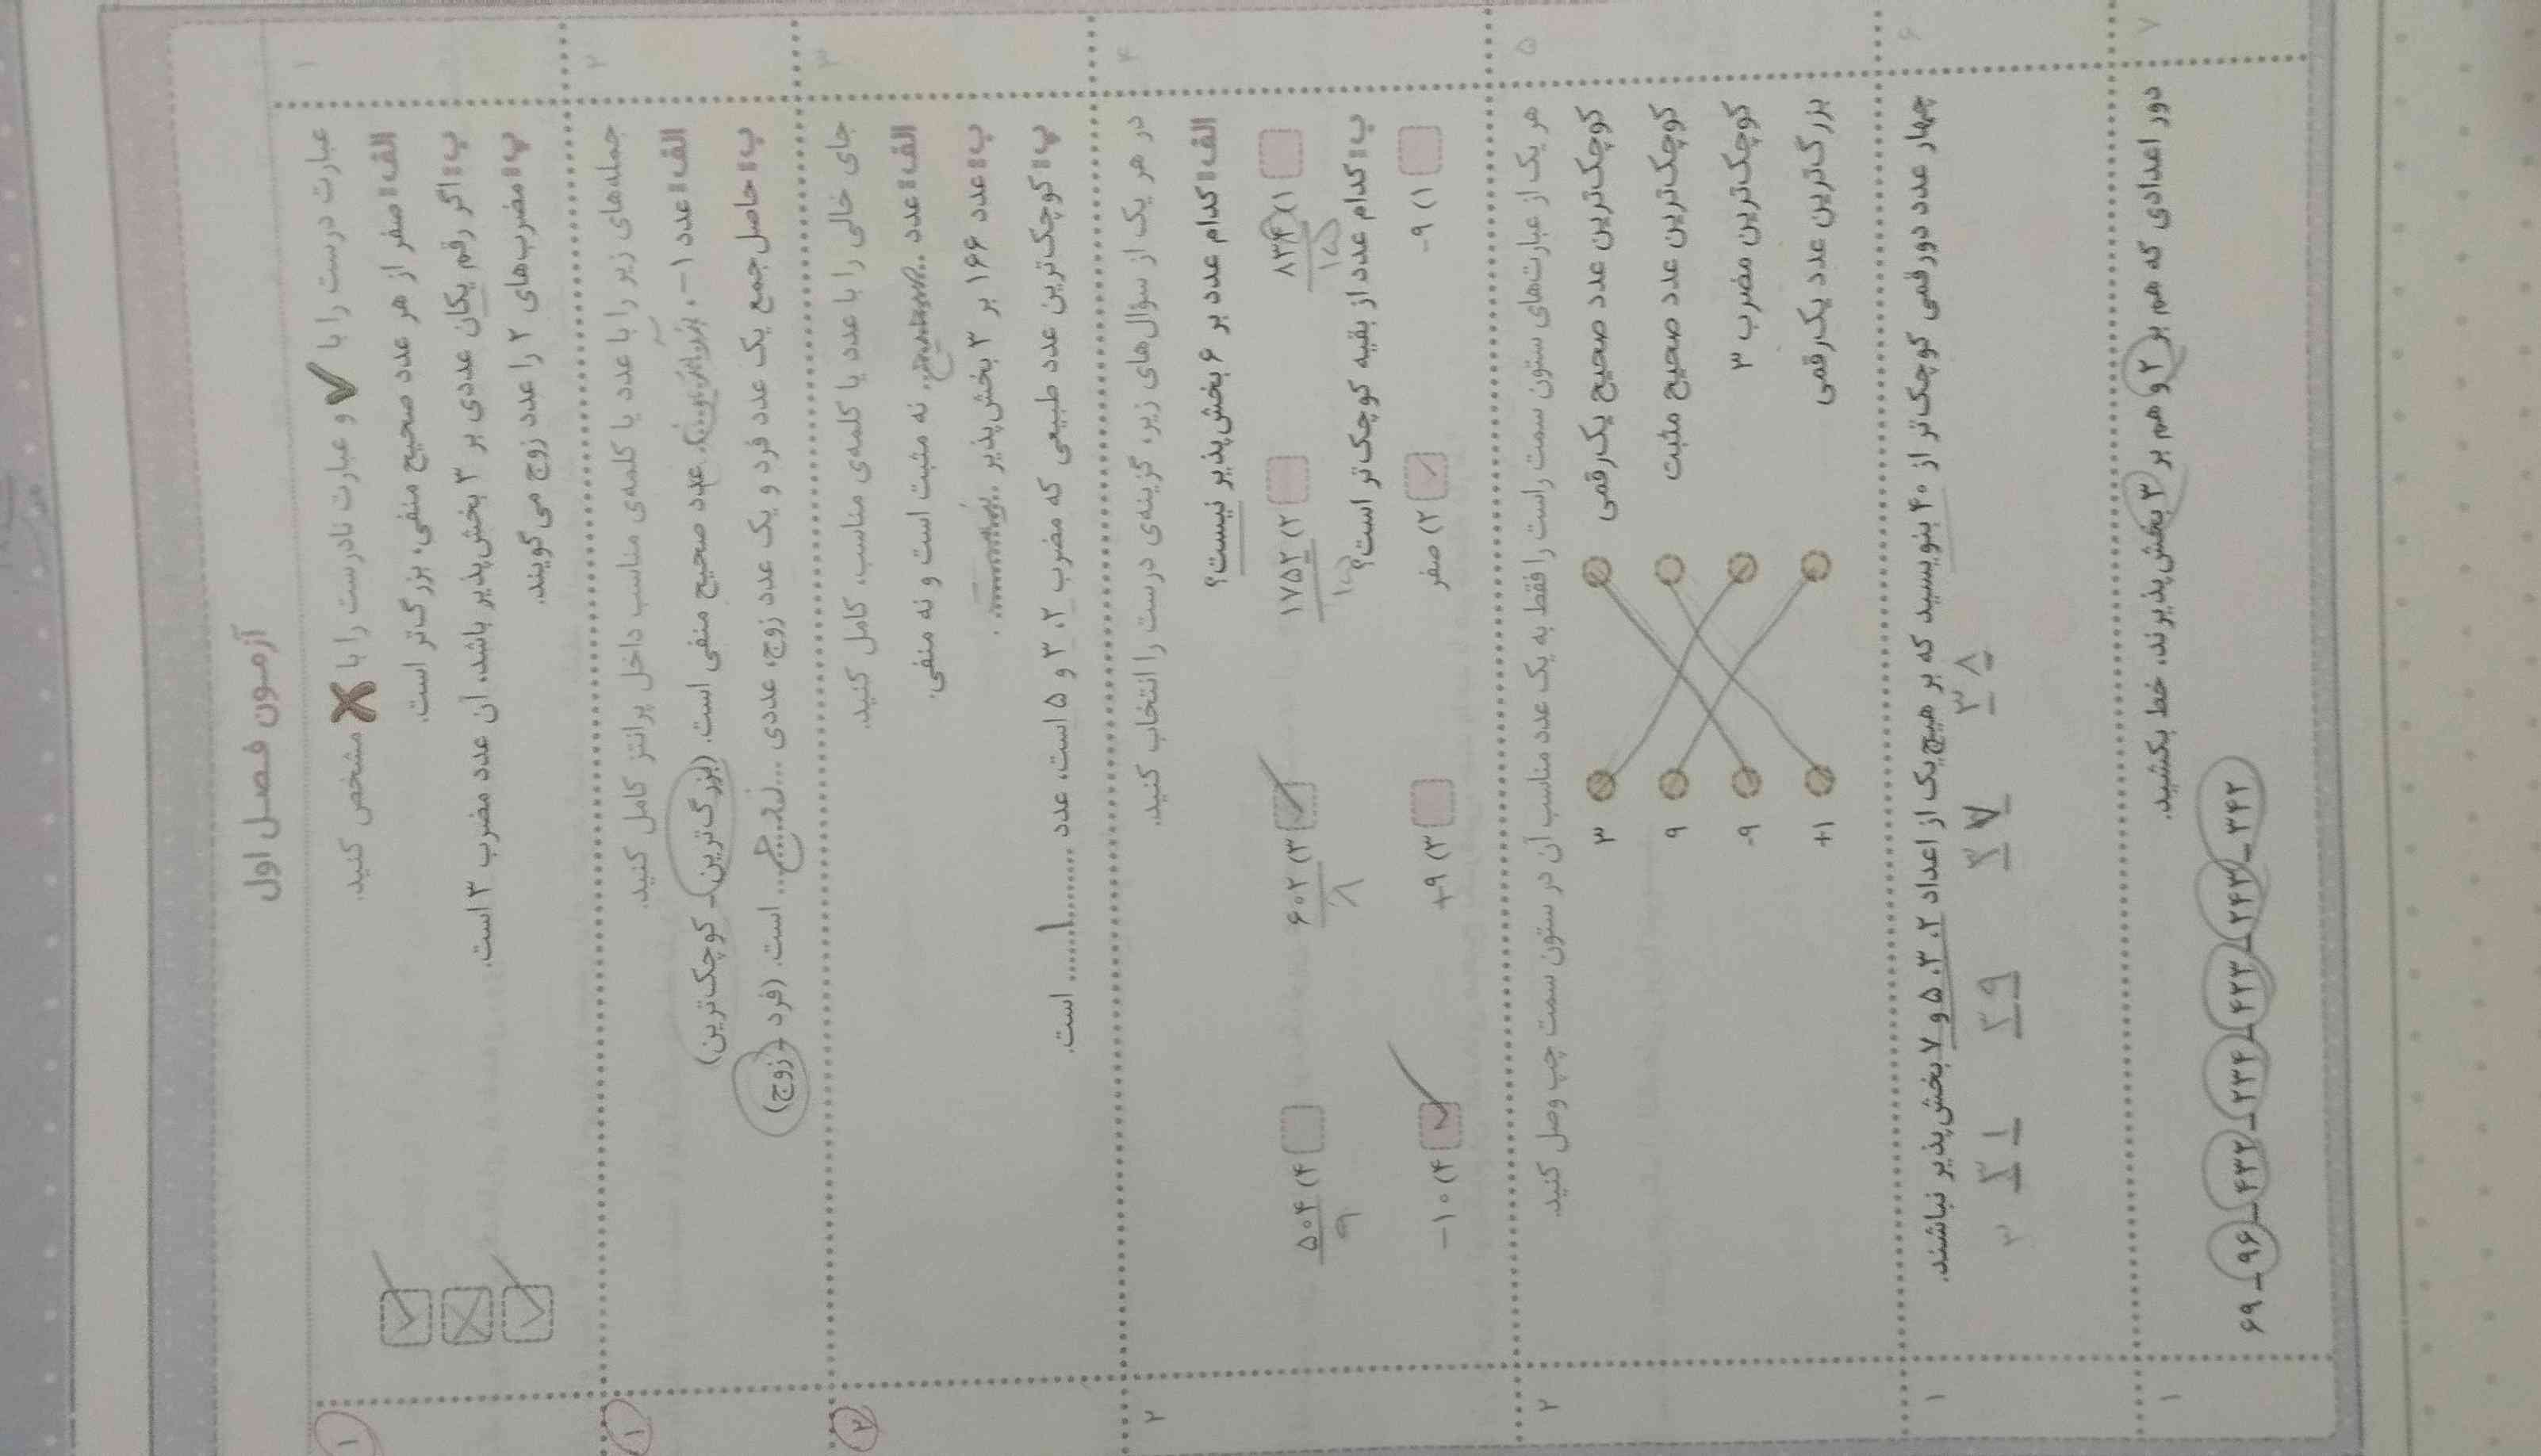 آزمون فصل اول
۱ عبارت درست را با ✔ و عبارت نادرست را با ✘ مشخص کنید. ۱
الف: صفر از هر عدد صحیح منفی، بزرگ‌تر است. ✓
ب: اگر رقم یکان عددی بر ۳ بخش‌پذیر باشد، آن عدد مضرب ۳ است. ×
پ: مضرب‌های ۲ را عدد زوج می‌گویند. ✓
۲ جمله‌های زیر را با عدد یا کلمه‌ی مناسب داخل پرانتز کامل کنید. ۱
الف: عدد ۱−، بزرگترین عدد صحیح منفی است. (بزرگ‌ترین - کوچک‌ترین)
ب: حاصل جمع یک عدد فرد و یک عدد زوج، عددی ... زوج ... است. (فرد - زوج)
۳ جای خالی را با عدد یا کلمه‌ی مناسب، کامل کنید. ۲
الف: عدد ........ نه مثبت است و نه منفی.
ب: عدد ۱۶۶ بر ۳ بخش‌پذیر ........ .
پ: کوچک‌ترین عدد طبیعی که مضرب ۲، ۳ و ۵ است، عدد ....... ۱ ....... است.
۴ در هر یک از سؤال‌های زیر، گزینه‌ی درست را انتخاب کنید. ۲
الف: کدام عدد بر ۶ بخش‌پذیر نیست؟
۱) ۸۳۴ ۲) ۱۷۵۲ ۳) ۶۰۲ ✓ ۴) ۵۰۴
۱۵ ۱۵ ۸ ۹
ب: کدام عدد از بقیه کوچک‌تر است؟
۱) ۹− ۲) صفر ۳) ۹+ ۴) ۱۰− ✓
۵ هر یک از عبارت‌های ستون سمت راست را فقط به یک عدد مناسب آن در ستون سمت چپ وصل کنید. ۲
کوچک‌ترین عدد صحیح یک‌رقمی ۳
کوچک‌ترین عدد صحیح مثبت ۹
کوچک‌ترین مضرب ۳ ۹-
بزرگ‌ترین عدد یک‌رقمی ۱+
۶ چهار عدد دورقمی کوچک‌تر از ۴۰ بنویسید که بر هیچ‌یک از اعداد ۲، ۳، ۵ و ۷ بخش‌پذیر نباشند. ۱
۳۸ ۳۷ ۲۹ ۳۱
۷ دور اعدادی که هم بر ۲ و هم بر ۳ بخش‌پذیرند، خط بکشید. ۱
۳۴۲ - ۲۴۳ - ۴۲۳ - ۲۳۴ - ۴۳۲ - ۹۶ - ۶۹